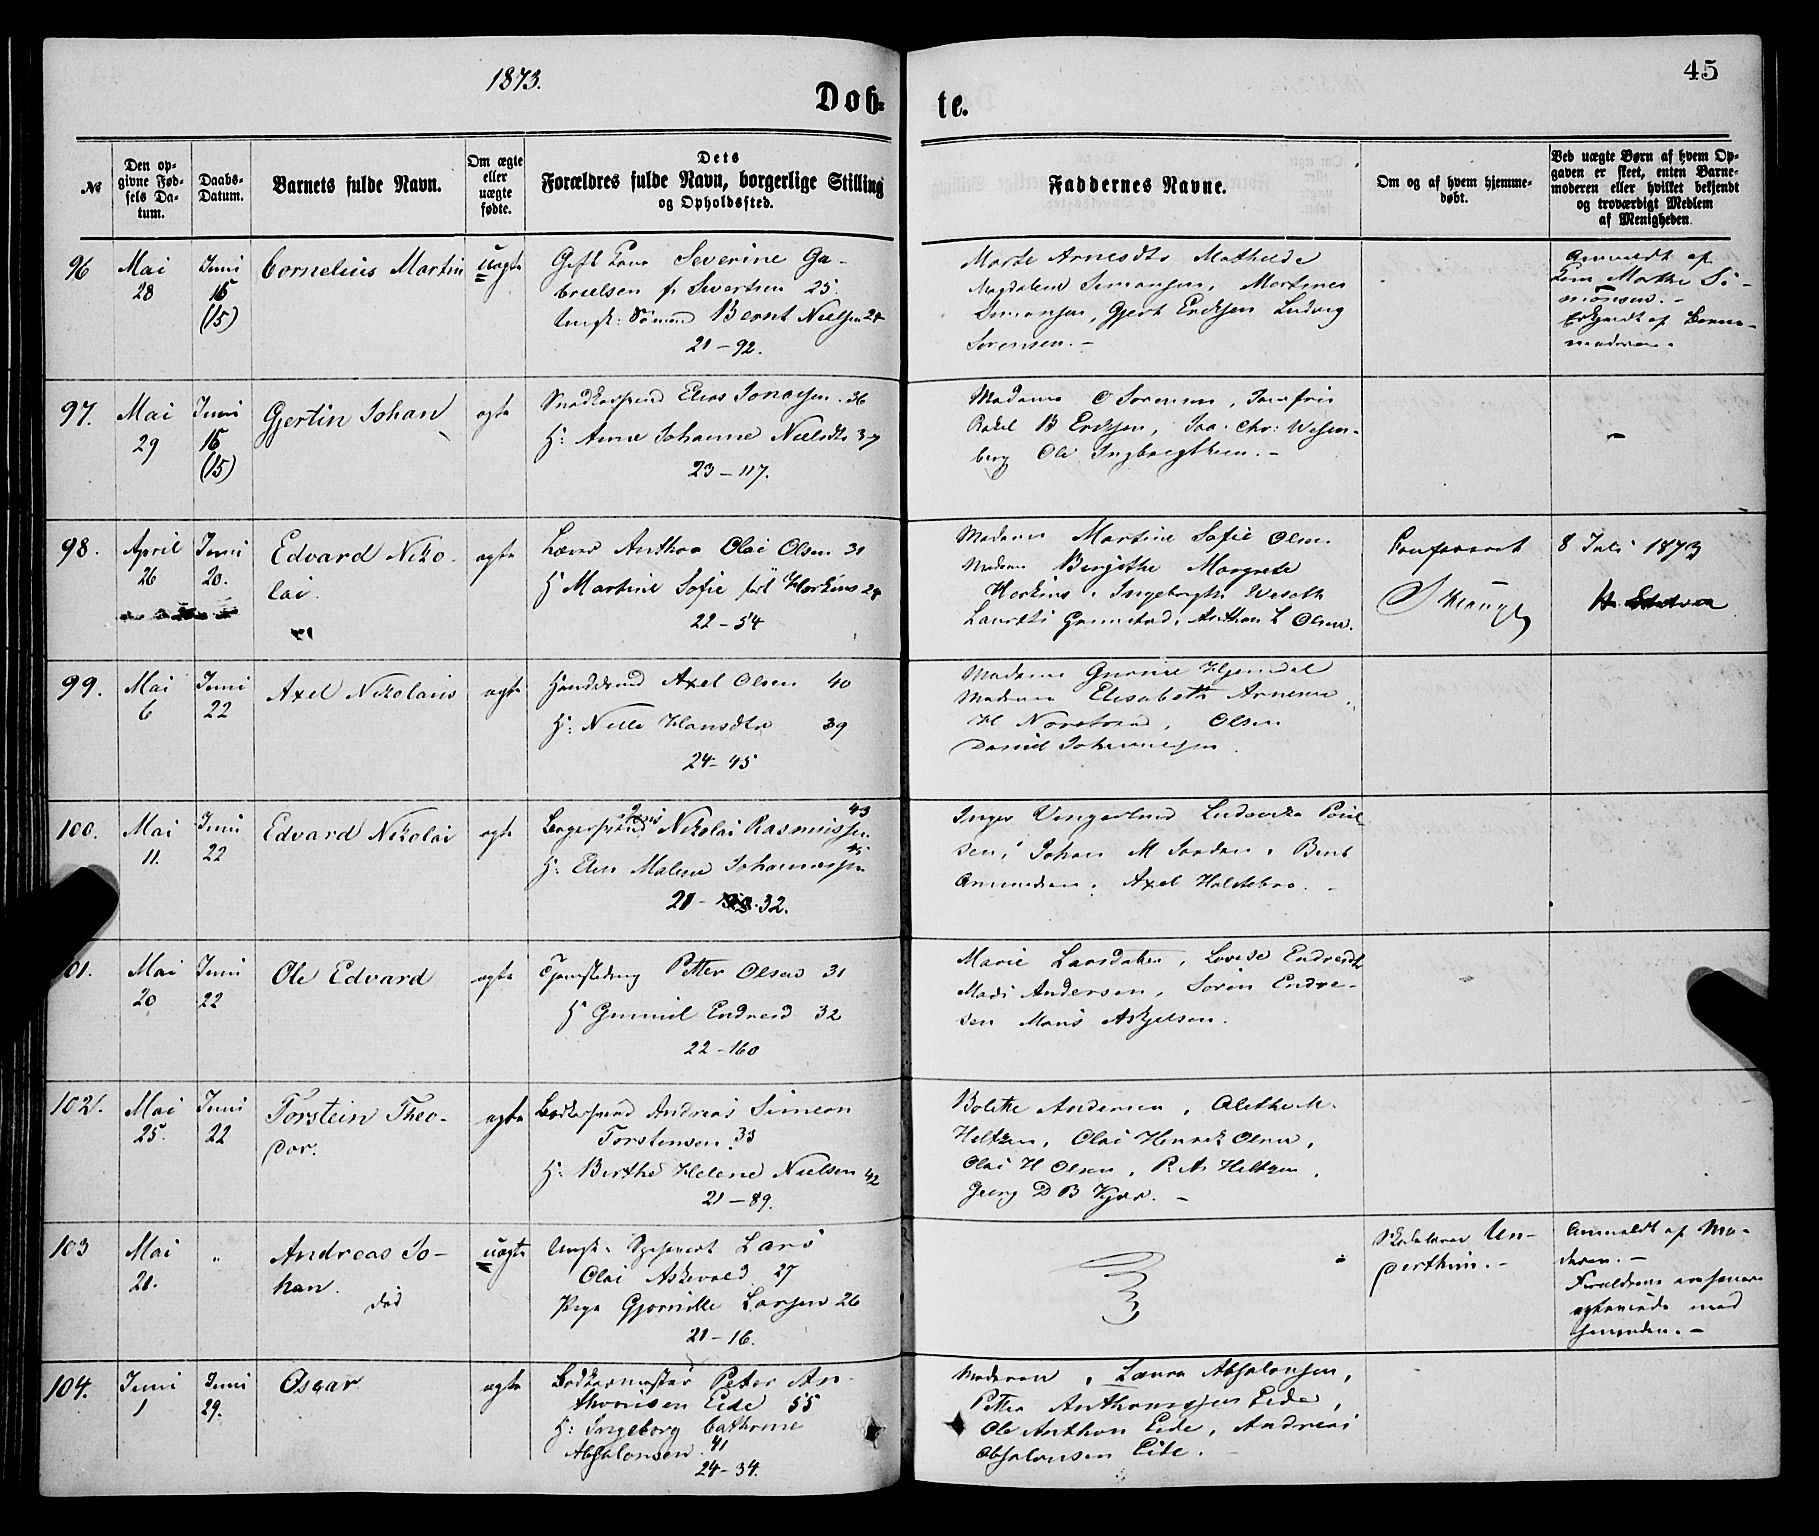 1873.
45
Døb-
te.
№
Den op-
givne Fød-
sels Da-
tum.
Daabs-
Datum.
Barnets fulde Navn.
Om ægte
eller
uægte
fødte.
Dets
Forældres fulde Navn, borgerlige Stilling
og Opholdssted.
Faddernes Navne.
Om og af hvem hjemme-
døbt.
Ved uægte Børn af hvem Op-
gaven er skeet, enten Barne-
moderen eller hvilket bekjendt
og troværdigt Medlem
af Menigheden.
96
Mai
28
Juni
15
(15)
Cornelius Martin
uægte
Gift Severine Ga-
brielsen f. Sivertsen 25.
Ungk: Sømand Bernt Nielsen 24
21-92.
Marte Arnesdtr Mathilde
Magdalene Simonsen, Martines
Simonsen, Gjert Eriksen Ludvig
Sørensen.-
Anmeldt af
Si-
monsen.-
af Barne-
moderen.
97.
Mai
29
Juni
15
(15)
Gjertin Johan
ægte
Elias Jonassen 36
H: Anne Johanne Nielsdtr 37
23-117.
Madame C Sørensen, Jomfru
Rakel B Eriksen, Wesen-
berg Ole Ingbregtsen.-
-
98.
April
26
Juni
20.
Edvard Niko-
lai.
ægte
Lærer Anthon Olai Olsen 31
H Martine Sofie født Harkins 24
22-54
Madame Martine Sofie Olsen
Madame Birgithe Margrete
Harkins, Ingeborgth
Gannestad, Anthon L Olsen.
8 Juli 1873
99.
Mai
6
Juni
22
Axel Nikolais
ægte
Axel Olsen 40
H: Nille Hansdtr 39
24-45
Madame Gunnil Hjemdal
Madame Elisabeth Arnesen,
H Olsen
Daniel Johannesen.
100.
Mai
11.
Juni
22
Edvard Nikolai
ægte
Nikolai Rasmussen
43
H: Elen Malene Johannessen
45
21-32.
Inger Ludvika Poul-
sen, Johan M Bent
Amundsen, Axel Holstebro.-
101.
Mai
20
Juni
22
Ole Edvard
ægte
Petter Olsen 31
H Gunnil Endresd 32
22-160
Marie Larsdatter, Lovise Endresdtr
Mads Andersen, Sørin Endre-
sen Mons Askjelsen.
102.
Mai
25.
Juni
22
Torstein Theo-
dor.
ægte
Bødkersvend Andreas Simeon
Torstensen 33
H: Berthe Helene Nielsen 42
21-89.
Bolette Andersen, Alethe M.
Heltzen, Olai Henrik Olsen,
Olai H Olsen, P. A. Heltzen,
Georg D B Kjær.-
103
Mai
21.
"
Andreas Jo-
han.
død
uægte
Ungk. Lars
Olai Askevold 27
Pige Gjørnille Larsen 26
21-16.
Un-
derthun.-
Anmeldt af Mo-
deren.-
Forældrene ere senere
ægteviede med
hinanden.-
104.
Juni
1
Juni
29.
Oscar
ægte
Bødkermester Peter An-
thonisen Eide 55
H: Ingeborg Cathrine
Absalonsen 41
24-34.
Moderen, Laura Absalonsen,
Petter Anthonisen Eide,
Ole Anthon Eide, Andreas
Absalonsen Eide.-